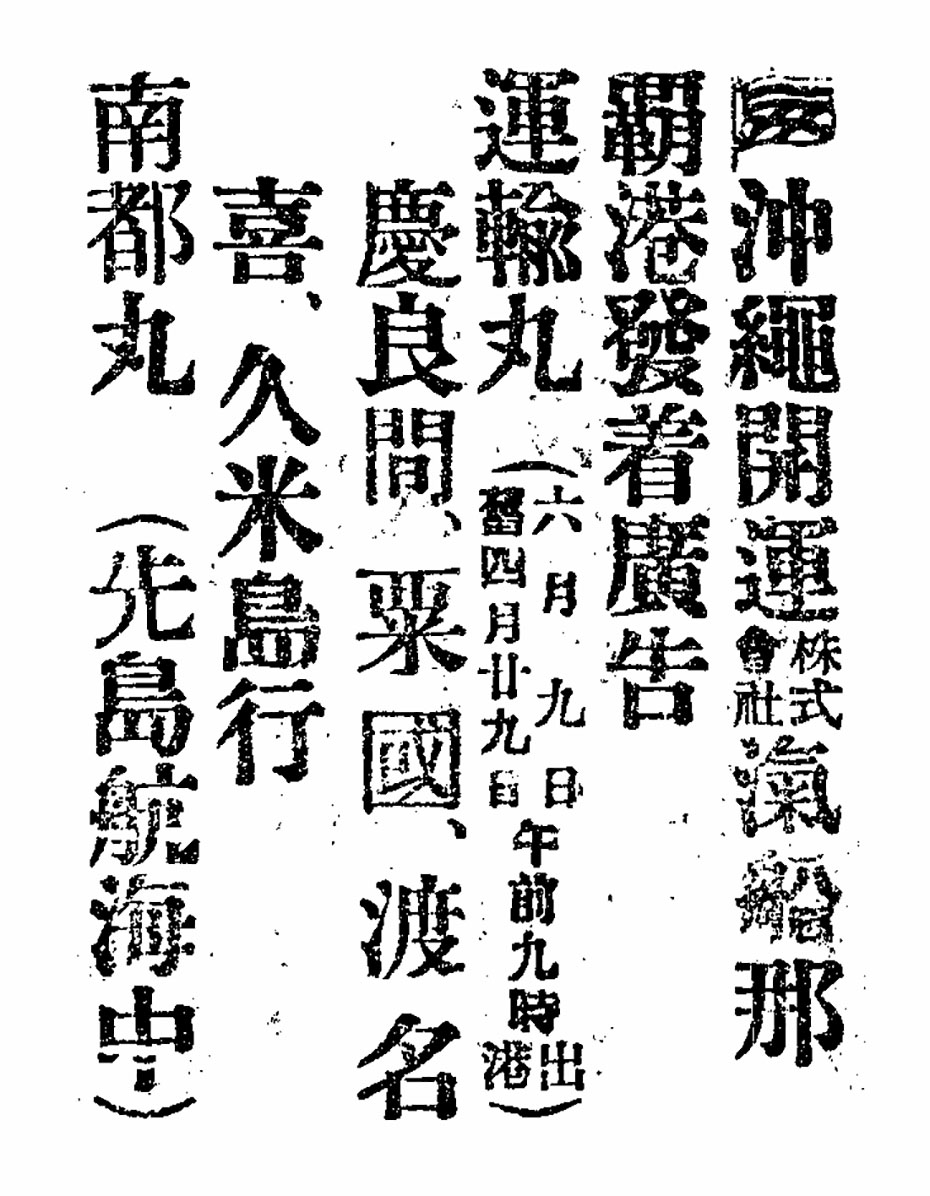 沖繩開運株式會社滊船那
覇港發着廣告
運輸丸(六月九日舊四月廿九日午前九時出港)
慶良間、粟國、渡名
喜、久米島行
南都丸 (先島航海中)